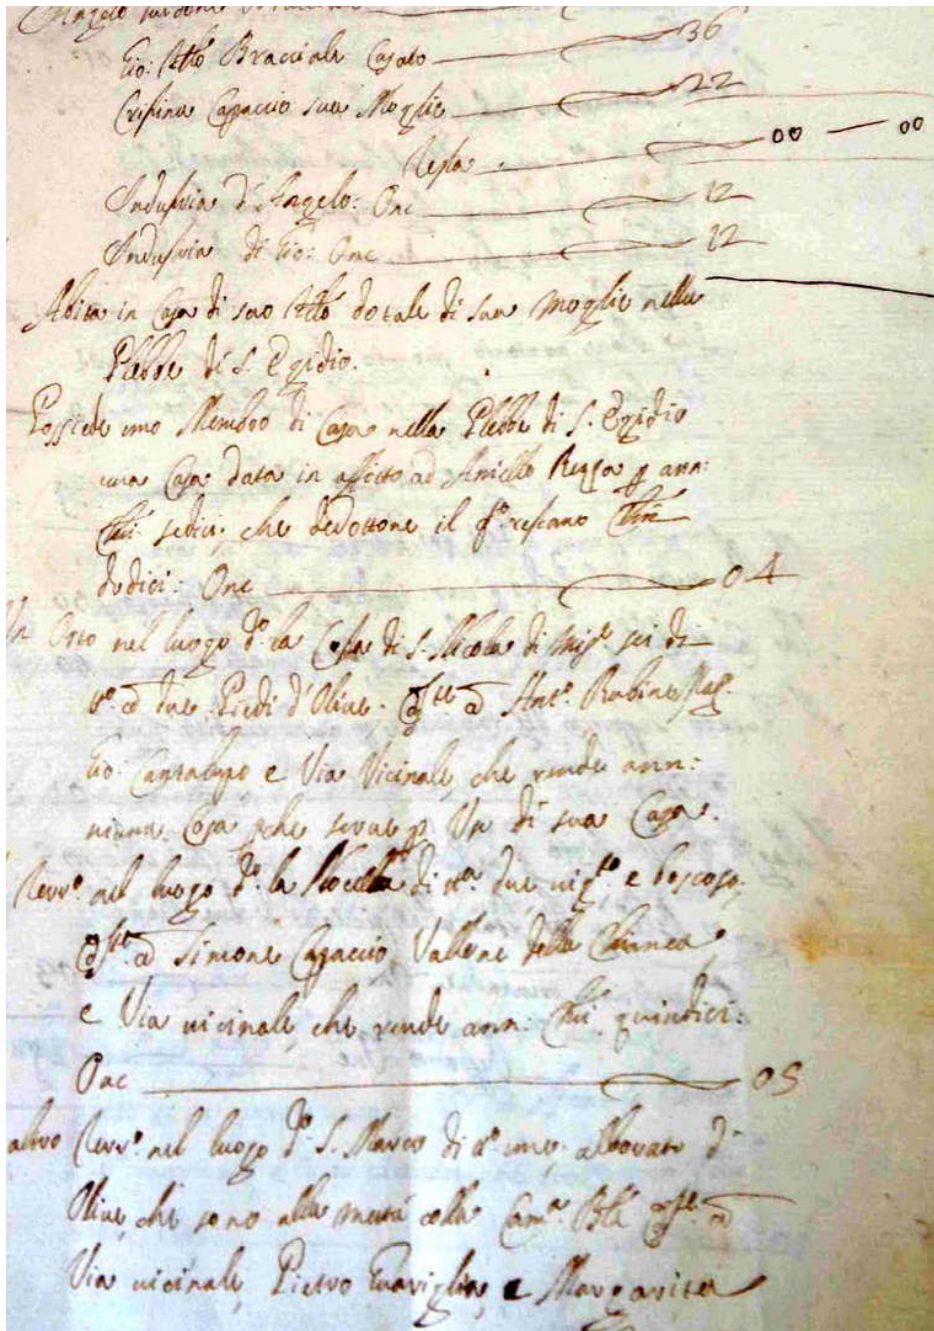 Angelo
Gio: Bracciale Casato 36
Crispina Capaccio sua Moglie 22
Testa 00 00
Industria d'Angelo: Onc 12
Industria di Gio: Onc 12
Abita in Casa di suo dotale di sua Moglie nella
Plebbe di S. Egidio.
Possiede uno Membro di Casa nella Plebbe di S. Egidio
una Casa data in affitto ad Aniello p ann:
sedici. che dedottone il restano
dodici: Onc 04
Un Orto nel luogo d:o la Costa di S. Nicola di Mis:e sei di
due Piedi d'Olive. Ant:o Rubine
Gio: Cantalupo e Via Vicinale, che rende ann:
niuna Cosa, che serve p Uso di sua Casa.
Terr:o nel luogo d:o la di due e boscoso.
Simone Capaccio, Vallone della Chianca,
e Via vicinale, che rende ann: quindici:
Onc 05
altro Terr:o nel luogo d:o S. Marco di uno arborato d'
Olive, che sono alla metà colla Cam:a
Via vicinale, Pietro e Margarita